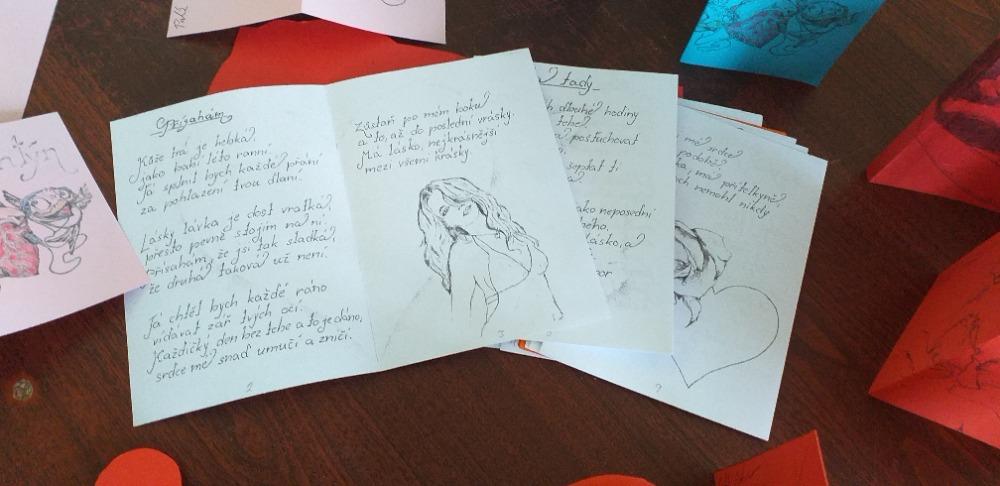 Přísahám
Kůže tvá je hebká,
jako babí léto ranní.
Já splnil bych každé přání
za pohlazení tvou dlaní.
Lásky lávka je dost vratká,
přesto pevně stojím na ní,
přísahám, že jsi tak sladká,
že druhá taková už není.
Já chtěl bych každé ráno
vídávat zář tvých očí.
Každičký den bez tebe a to je dáno,
srdce mé snad umučí a zničí.
2
Zůstaň po mém boku
a to, až do poslední vrásky.
Má lásko, nejkrásnější
mezi všemi krásky.
3
tady
dlouhé hodiny
tebe
postouchovat
šeptat ti
jako neposední
lásko, a
mé srdce
má přítelkyně,
nemohl nikdy
ntýn